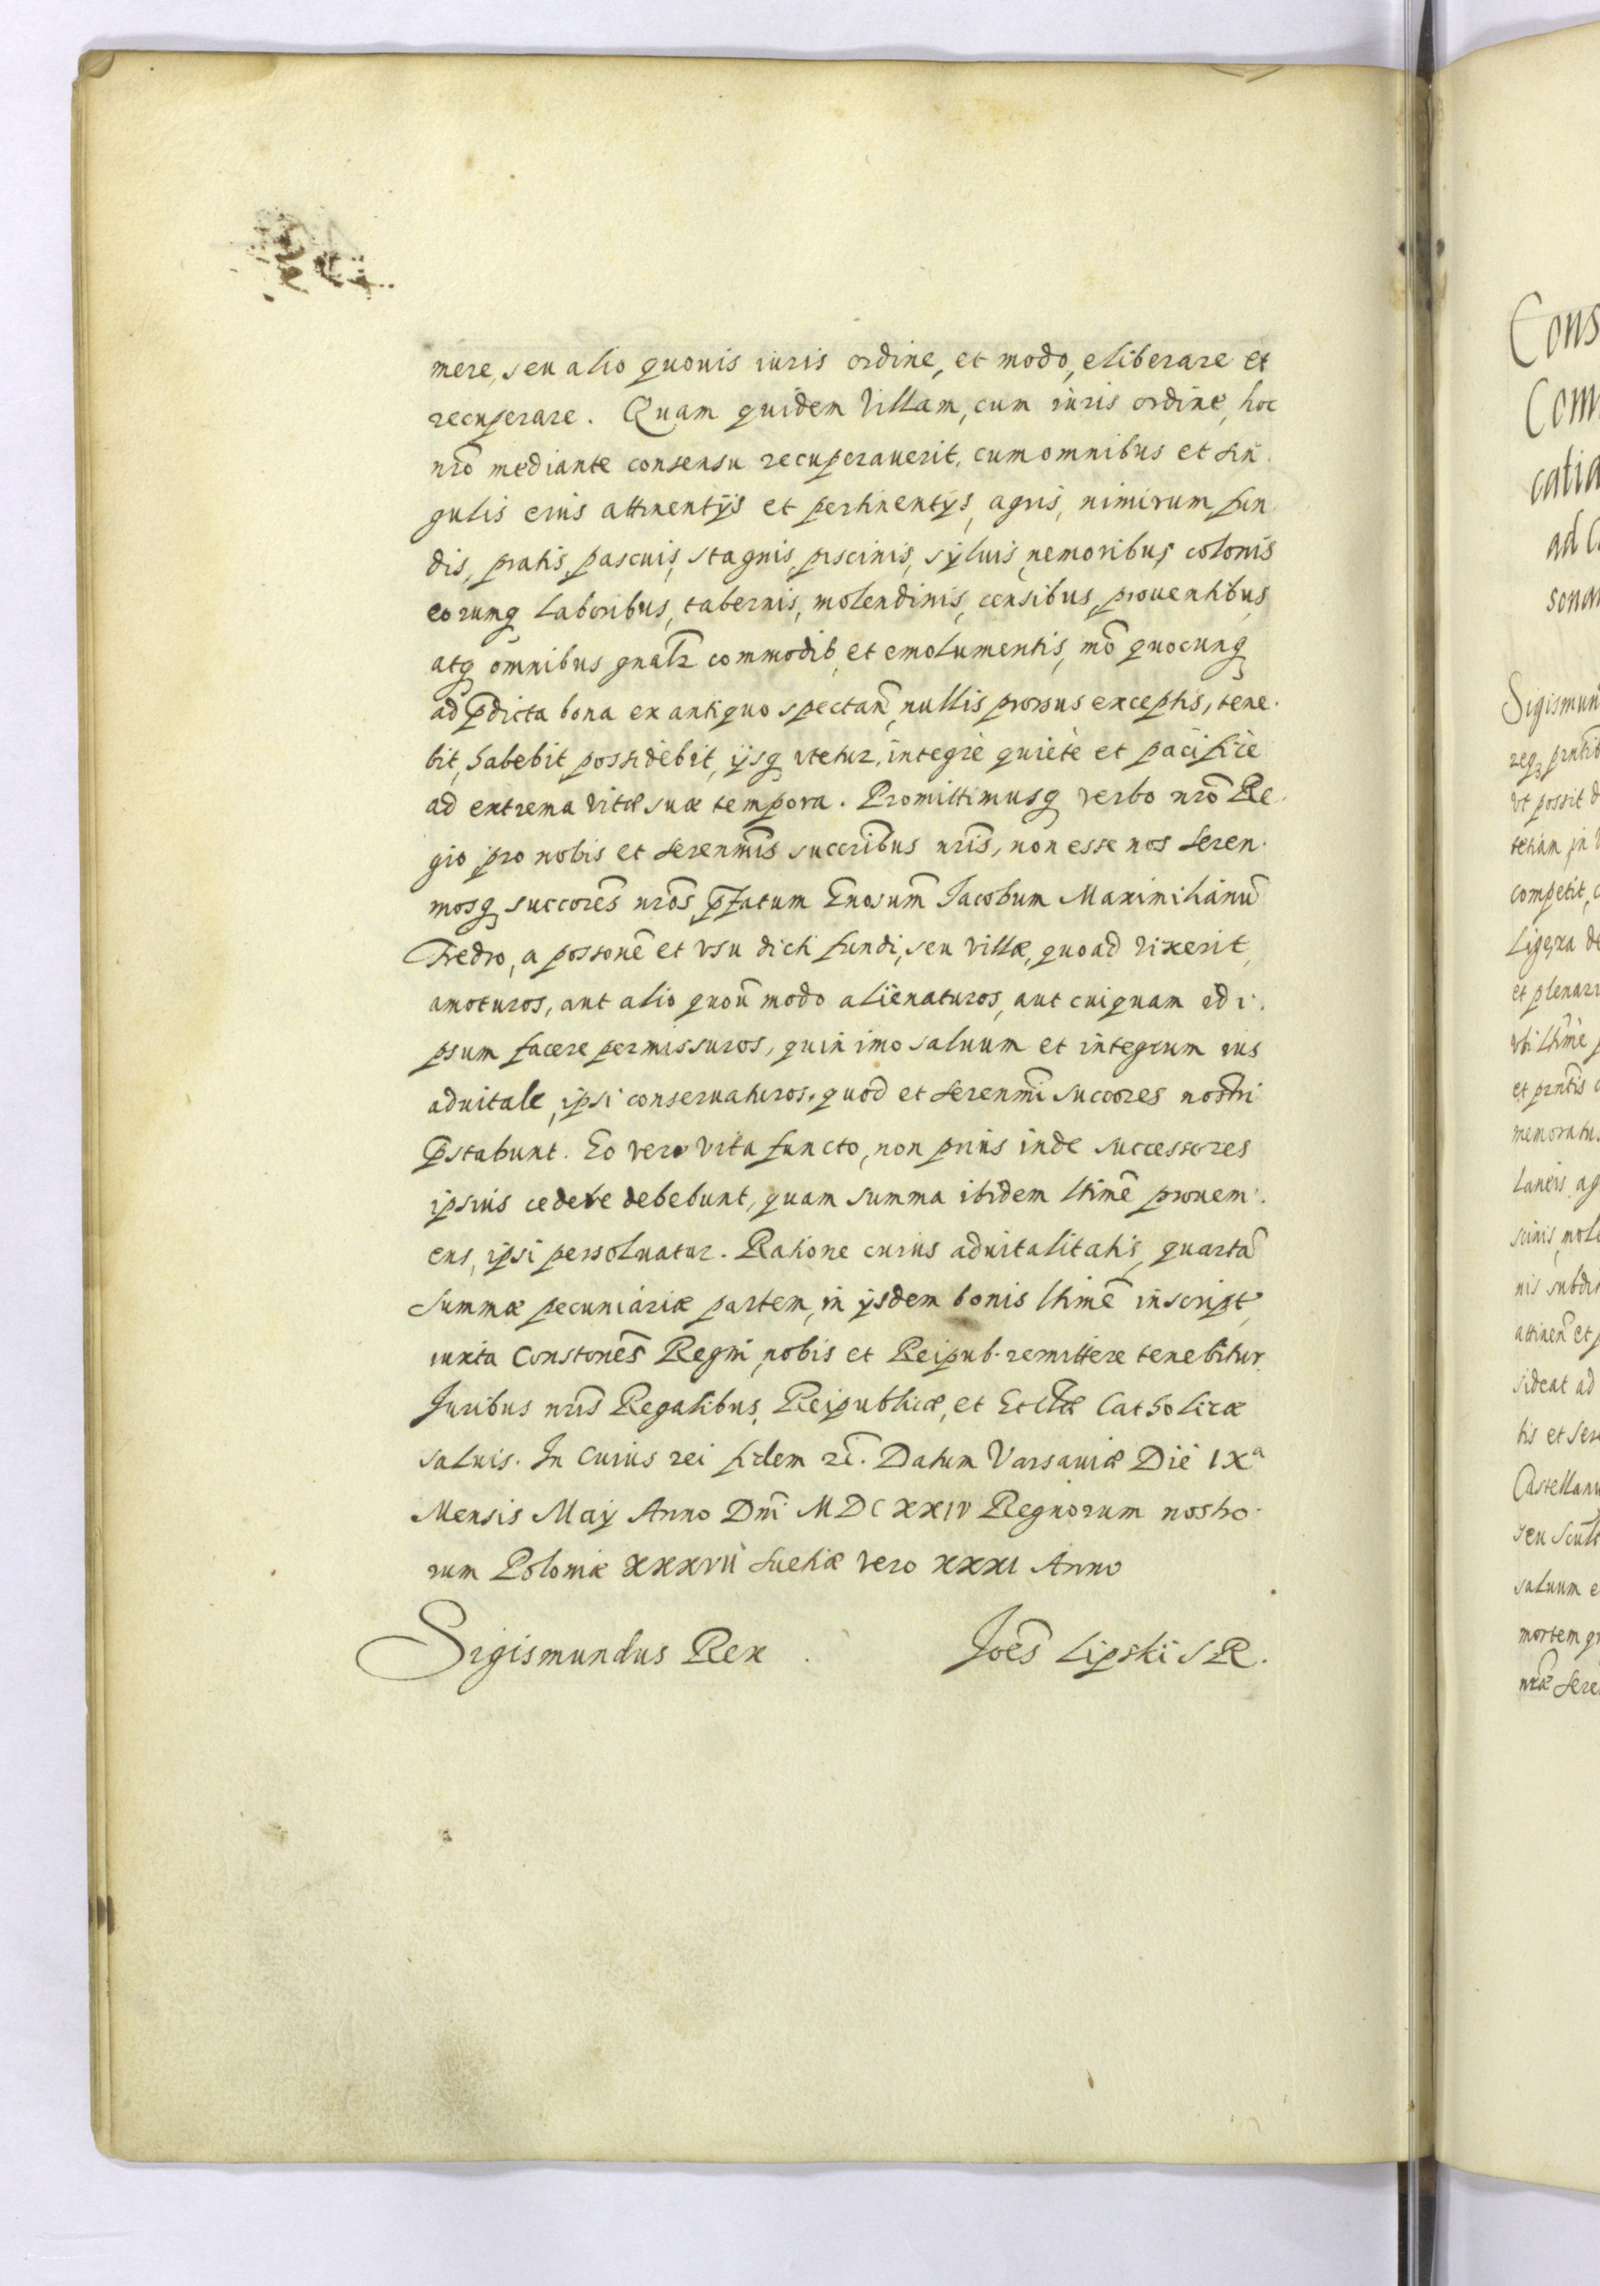 mere, seu alio quouis iuris ordine, et modo, eliberare et
recuperare. Quam quidem Villam, cum iuris ordine, hoc
nrõ mediante consensu recuperauerit, cum omnibus et sin
gulis eius attinentÿs et pertinentÿs, agris, nimirum fun
dis, pratis, pascuis, stagnis, piscinis, syluis, nemoribus, colonis
eorumq laboribus, tabernis, molendinis, censibus, prouentibus,
atq omnibus gnalr commodib, et emolumentis, mõ quocunq
ad pdicta bona ex antiquo spectañ, nullis prorsus exceptis, tene.
bit, habebit, possidebit, ijsq vtetur, integrè quietè et pacificè
ad extrema vitæ suæ tempora. Promittimusq verbo nrõ Re.
gio pro nobis et serenm̃is succrĩbus nrĩs, non esse nos seren.
mosq succorẽs nrõs, pfatum Gnosum̃ Jacobum Maximilianũ
Fredro, a possonẽ et vsu dicti fundi, seu villæ, quoad vixerit,
amoturos, aut alio quoũ modo alienaturos, aut cuiquam id i.
psum facere permissuros, quin imo saluum et integrum ius
aduitale, ipsi conseruaturos, quod et serenm̃i succores nostri
pstabunt. Eo vero vita functo, non prius inde successores
ipsius cedere debebunt, quam summa ibidem ltimẽ proueni.
ens, ipsi persoluatur. Ratione cuius aduitalitatis, quartã
summæ pecuniariæ partem, in ijsdem bonis ltimẽ inscript,
iuxta Constonẽs Regni, nobis et Reipub. remittere tenebitur
Juribus nrĩs Regalibus, Reipublicæ, et Ecclæ Catholicæ
saluis. In Cuius rei fidem rĩ. Datum Varsauiæ Die IXa
Mensis Maÿ Anno Dnĩ MDCXXIV Regnorum nostro.
rum Poloniæ XXXVII Sueciæ vero XXXI Anno
Sigismundus Rex. Joẽs Lipski SR.
Cons
Com
catia
ad
sona
Sigismun
vt possit
competit,
et plenar
memoratu
sideat ad
tis et ser
Castellanu
saluum e
mortem